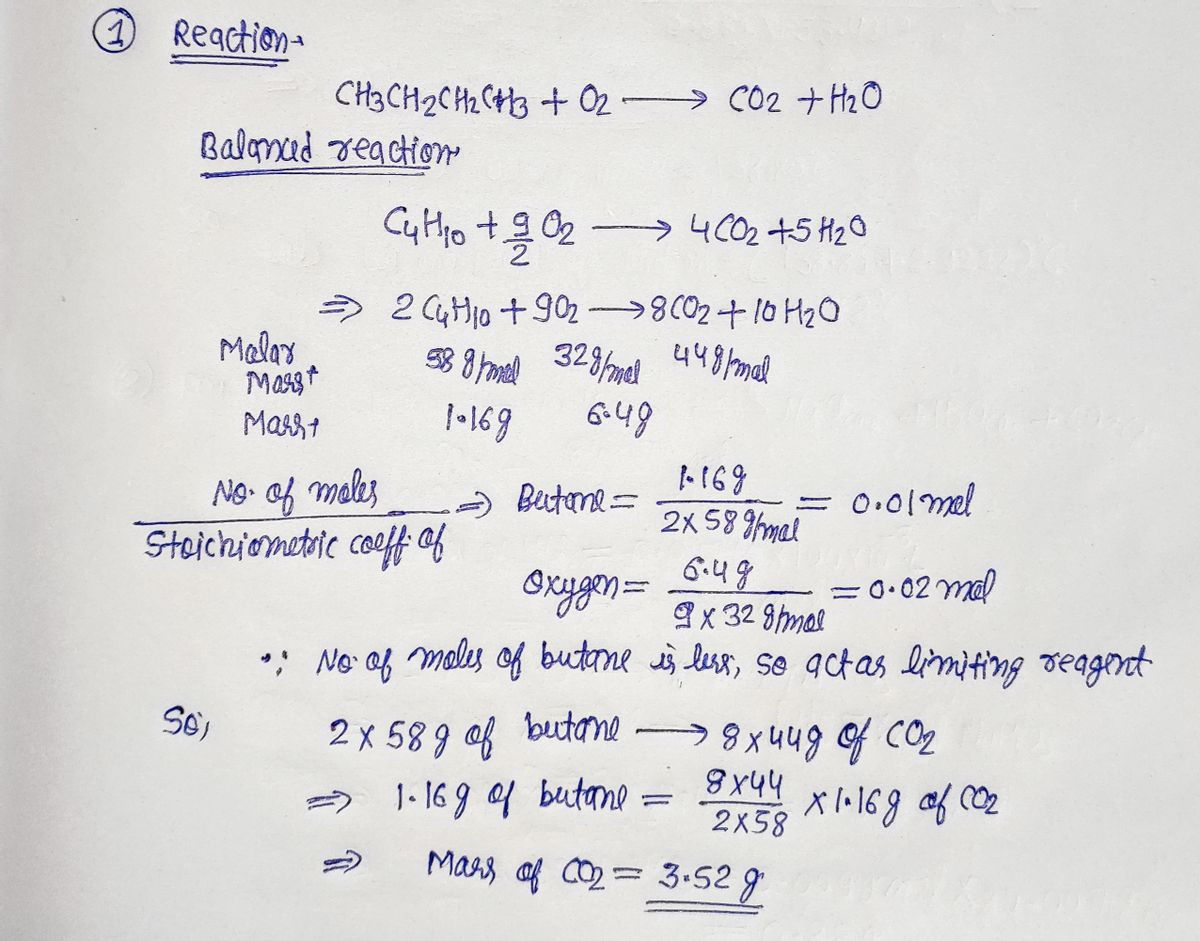 ① Reaction→
CH3CH2CH2CH3 + O2 ⟶ CO2 + H2O
Balanced reaction
C4H10 + 9/2 O2 ⟶ 4CO2 + 5H2O
⇒ 2C4H10 + 9O2 ⟶ 8CO2 + 10H2O
Molar Mass→ 58 g/mol 32g/mol 44g/mol
Mass→ 1.16g 6.4g
No. of moles / Stoichiometric coeff. of ⇒ Butane = 1.16g / 2×58 g/mol = 0.01 mol
Oxygen = 6.4g / 9×32 g/mol = 0.02 mol
∵ No. of moles of butane is less, so act as limiting reagent
So, 2×58g of butane ⟶ 8×44g of CO2
⇒ 1.16g of butane = 8×44 / 2×58 × 1.16g of CO2
⇒ Mass of CO2 = 3.52 g